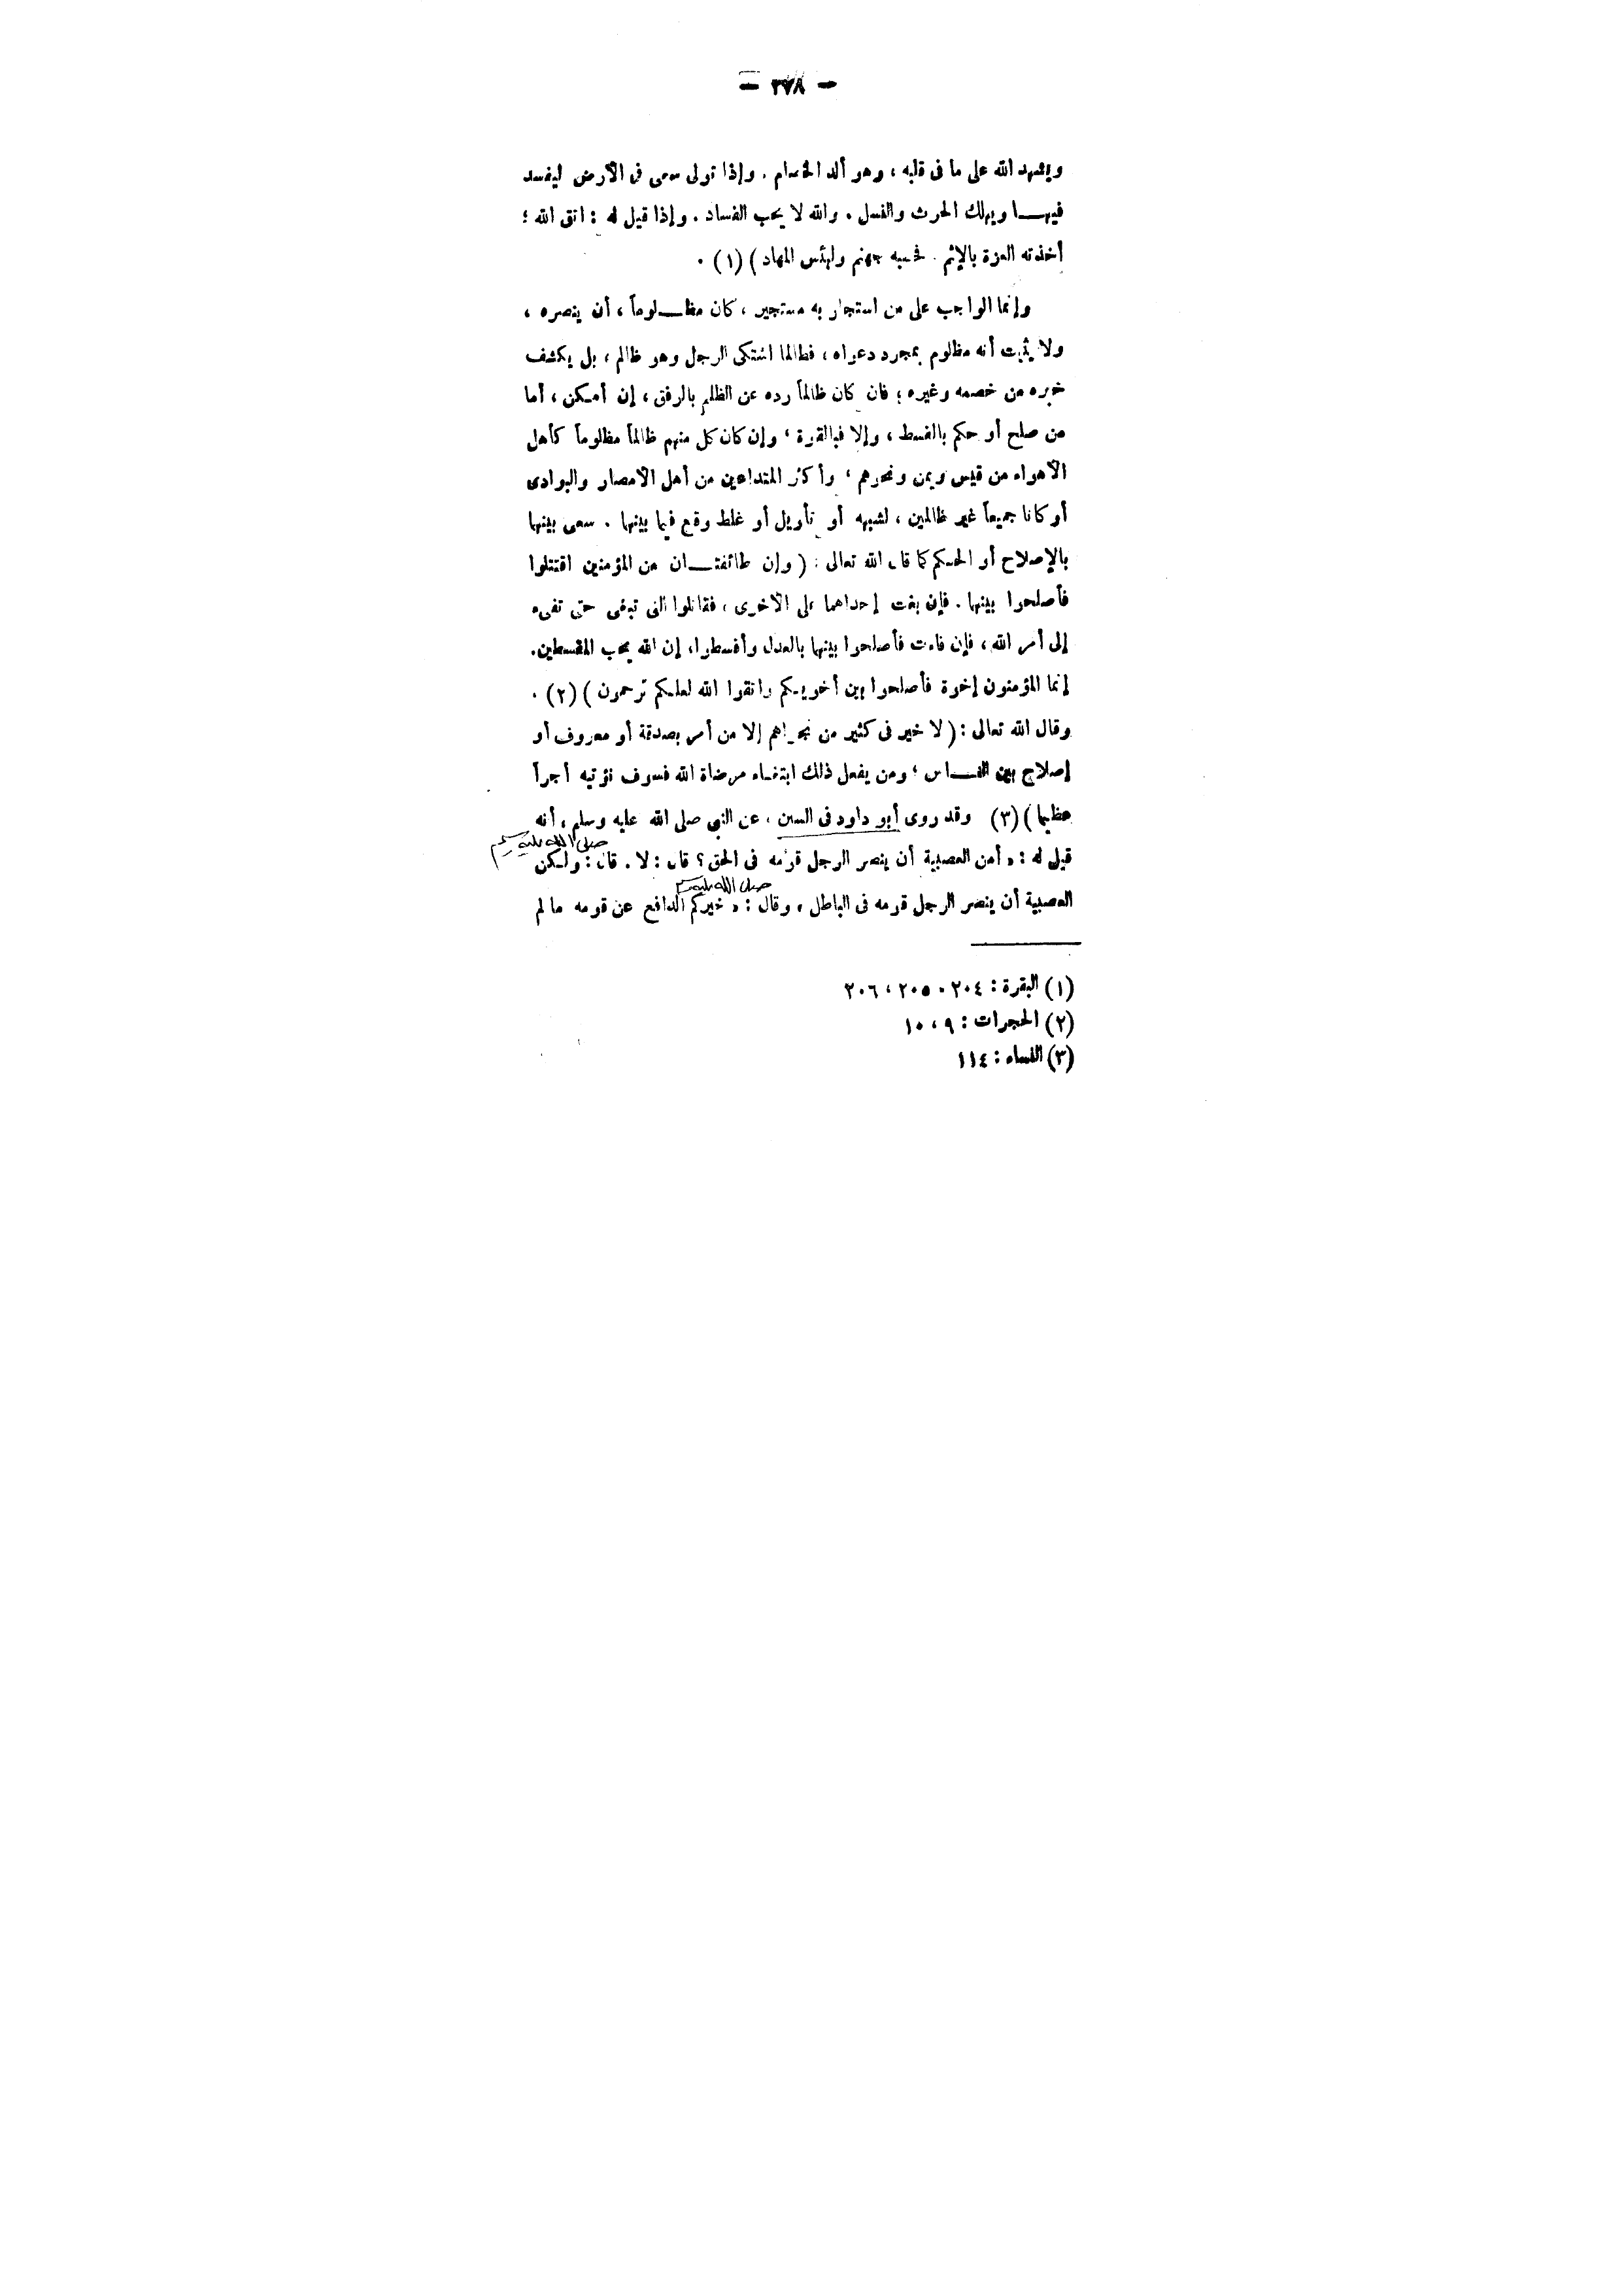 — ٣٧٨ —
ويشهد الله على ما فى قلبه ، وهو ألد الخصام . وإذا تولى سعى فى الأرض ليفسد
فيهـــا ويهلك الحرث والنسل . والله لا يحب الفساد . وإذا قيل له : اتق الله ؛
أخذته العزة بالإثم . فحسبه جهنم ولبئس المهاد ) (١) .
وإنما الواجب على من استجار به مستجير ، كان مظـــلوماً ، أن ينصره ،
ولا يثبت أنه مظلوم بمجرد دعواه ، فطالما اشتكى الرجل وهو ظالم ، بل يكشف
خبره من خصمه وغيره ؛ فان كان ظالماً رده عن الظلم بالرفق ، إن أمكن ، أما
من صلح أو حكم بالقسط ، وإلا فبالقوة ، وإن كان كل منهم ظالماً مظلوماً كأهل
الأهواء من قيس ويمن ونحوهم ، وأكثر المتداعين من أهل الأمصار والبوادى
أو كانا جميعاً غير ظالمين ، لشبهه أو تأويل أو غلط وقع فيما بينهما . سعى بينهما
بالإصلاح أو الحكم كما قال الله تعالى : ( وإن طائفتـــان من المؤمنين اقتتلوا
فأصلحوا بينهما . فإن بغت إحداهما على الأخرى ، فقاتلوا التى تبغى حتى تفىء
إلى أمر الله ، فإن فاءت فأصلحوا بينهما بالعدل وأقسطوا، إن الله يحب المقسطين.
إنما المؤمنون إخوة فأصلحوا بين أخويكم واتقوا الله لعلكم ترحمون ) (٢) .
وقال الله تعالى : ( لا خير فى كثير من نجواهم إلا من أمر بصدقة أو معروف أو
إصلاح بين النـــاس ؛ ومن يفعل ذلك ابتغاء مرضاة الله فسوف نؤتيه أجراً
عظيما ) (٣) وقد روى أبو داود فى السنن ، عن النبى صلى الله عليه وسلم ، أنه
صلى الله عليه وسلم
قيل له : « أمن العصبية أن ينصر الرجل قومه فى الحق ؟ قال : لا . قال : ولكن
صلى الله عليه وسلم
العصبية أن ينصر الرجل قومه فى الباطل ، وقال : « خيركم الدافع عن قومه ما لم
(١) البقرة : ٢٠٤ ، ٢٠٥ ، ٢٠٦
(٢) الحجرات : ٩ ، ١٠
(٣) النساء : ١١٤